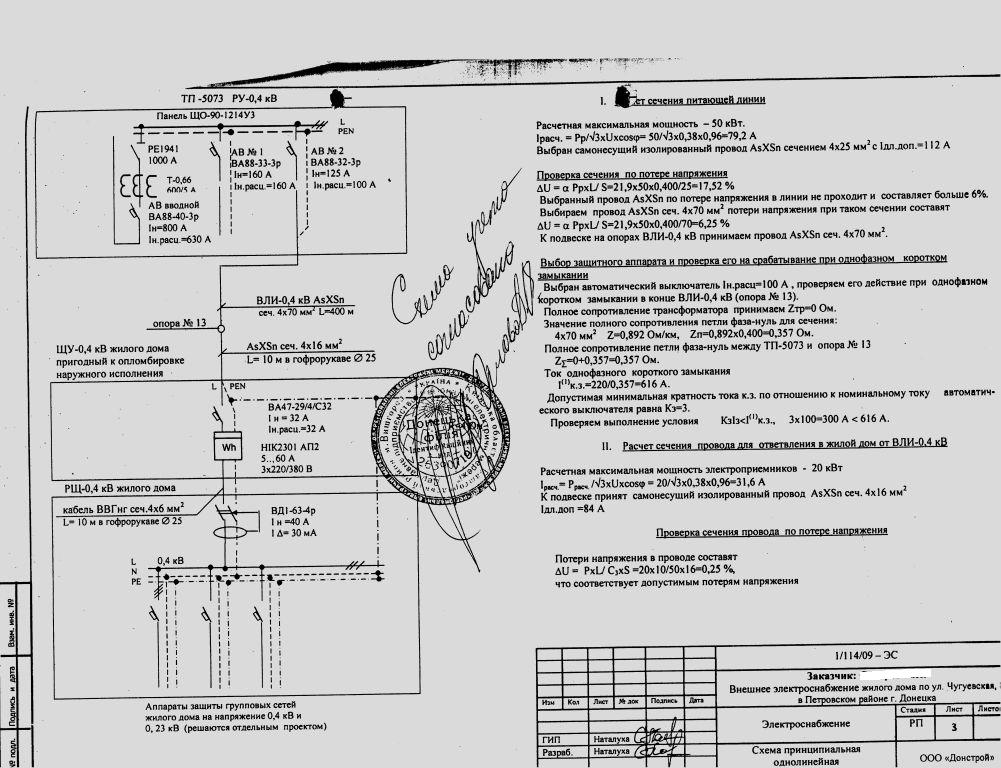 ТП -5073 РУ-0,4 кВ
Панель ЩО-90-1214У3
L
PEN
РЕ1941
1000 А
Т-0,66
600/5 А
АВ вводной
ВА88-40-3р
Iн=800 А
Iн.расц.=630 А
АВ № 1
ВА88-33-3р
Iн=160 А
Iн.расц.=160 А
АВ № 2
ВА88-32-3р
Iн=125 А
Iн.расц.=100 А
ВЛИ-0,4 кВ AsXSn
сеч. 4х70 мм² L=400 м
опора № 13
AsXSn сеч. 4х16 мм²
L= 10 м в гофрорукаве ∅ 25
ЩУ-0,4 кВ жилого дома
пригодный к опломбировке
наружного исполнения
L
PEN
ВА47-29/4/С32
I н = 32 А
Iн.расц.=32 А
Wh
НІК2301 АП2
5...,60 А
3х220/380 В
РЩ-0,4 кВ жилого дома
кабель ВВГнг сеч.4х6 мм²
L= 10 м в гофрорукаве ∅ 25
ВД1-63-4р
I н =40 А
I Δ= 30 мА
L 0,4 кВ
N
PE
Аппараты защиты групповых сетей
жилого дома на напряжение 0,4 кВ и
0, 23 кВ (решаются отдельным проектом)
Схема
согласовано
УКРАЇНА
Донецька
філія
Ідентифікаційний
I. ет сечения питающей линии
Расчетная максимальная мощность – 50 кВт.
Iрасч. = Рр/√3хUхcosφ= 50/√3х0,38х0,96=79,2 А
Выбран самонесущий изолированный провод AsXSn сечением 4х25 мм² с Iдл.доп.=112 А
Проверка сечения по потере напряжения
ΔU = α РрхL/ S=21,9х50х0,400/25=17,52 %
Выбранный провод AsXSn по потере напряжения в линии не проходит и составляет больше 6%.
Выбираем провод AsXSn сеч. 4х70 мм² потери напряжения при таком сечении составят
ΔU = α РрхL/ S=21,9х50х0,400/70=6,25 %
К подвеске на опорах ВЛИ-0,4 кВ принимаем провод AsXSn сеч. 4х70 мм².
Выбор защитного аппарата и проверка его на срабатывание при однофазном коротком
замыкании
Выбран автоматический выключатель Iн.расц=100 А , проверяем его действие при однофазном
коротком замыкании в конце ВЛИ-0,4 кВ (опора № 13).
Полное сопротивление трансформатора принимаем Zтр=0 Ом.
Значение полного сопротивления петли фаза-нуль для сечения:
4х70 мм² Z=0,892 Ом/км, Zп=0,892х0,400=0,357 Ом.
Полное сопротивление петли фаза-нуль между ТП-5073 и опора № 13
Z∑=0+0,357=0,357 Ом.
Ток однофазного короткого замыкания
I⁽¹⁾к.з.=220/0,357=616 А.
Допустимая минимальная кратность тока к.з. по отношению к номинальному току автоматич-
еского выключателя равна Кз=3.
Проверяем выполнение условия КзIз<I⁽¹⁾к.з., 3х100=300 А < 616 А.
II. Расчет сечения провода для ответвления в жилой дом от ВЛИ-0,4 кВ
Расчетная максимальная мощность электроприемников - 20 кВт
Iрасч.= Ррасч./√3хUхcosφ = 20/√3х0,38х0,96=31,6 А
К подвеске принят самонесущий изолированный провод AsXSn сеч. 4х16 мм²
Iдл.доп =84 А
Проверка сечения провода по потере напряжения
Потери напряжения в проводе составят
ΔU = РхL/ С₃хS =20х10/50х16=0,25 %,
что соответствует допустимым потерям напряжения
Взам. инв. №
Подпись и дата
№ подл.
1/114/09 – ЭС
Заказчик:
Внешнее электроснабжение жилого дома по ул. Чугуевская,
в Петровском районе г. Донецка
Изм Кол Лист № док Подпись Дата
Электроснабжение
Стадия Лист Листо
РП 3
ГИП Наталуха
Разраб. Наталуха
Схема принципиальная
однолинейная
ООО «Донстрой»